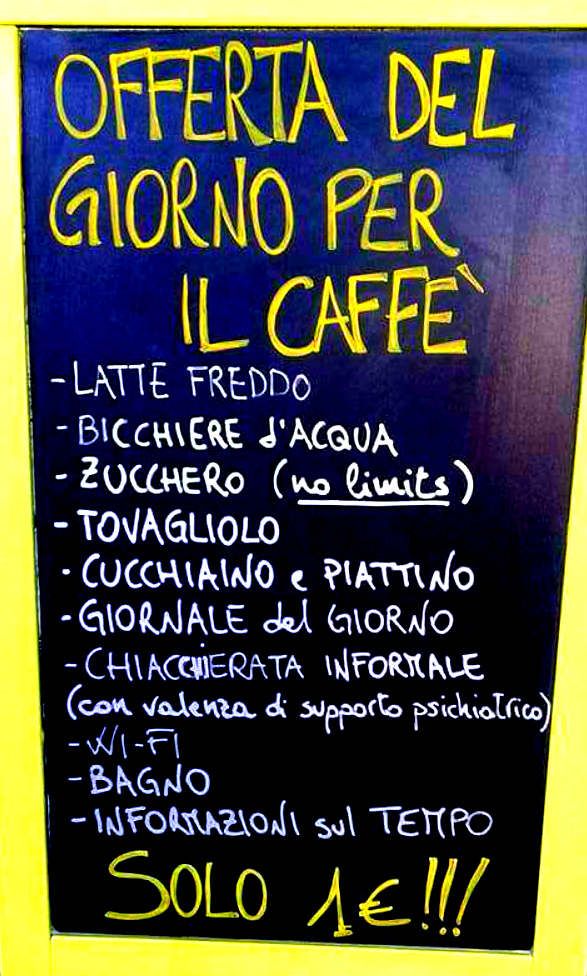 OFFERTA DEL
GIORNO PER
IL CAFFÈ
- LATTE FREDDO
- BICCHIERE d'ACQUA
- ZUCCHERO (no limits)
- TOVAGLIOLO
- CUCCHIAINO e PIATTINO
- GIORNALE del GIORNO
- CHIACCHIERATA INFORMALE
(con valenza di supporto psichiatrico)
- WI-FI
- BAGNO
- INFORMAZIONI sul TEMPO
SOLO 1€!!!